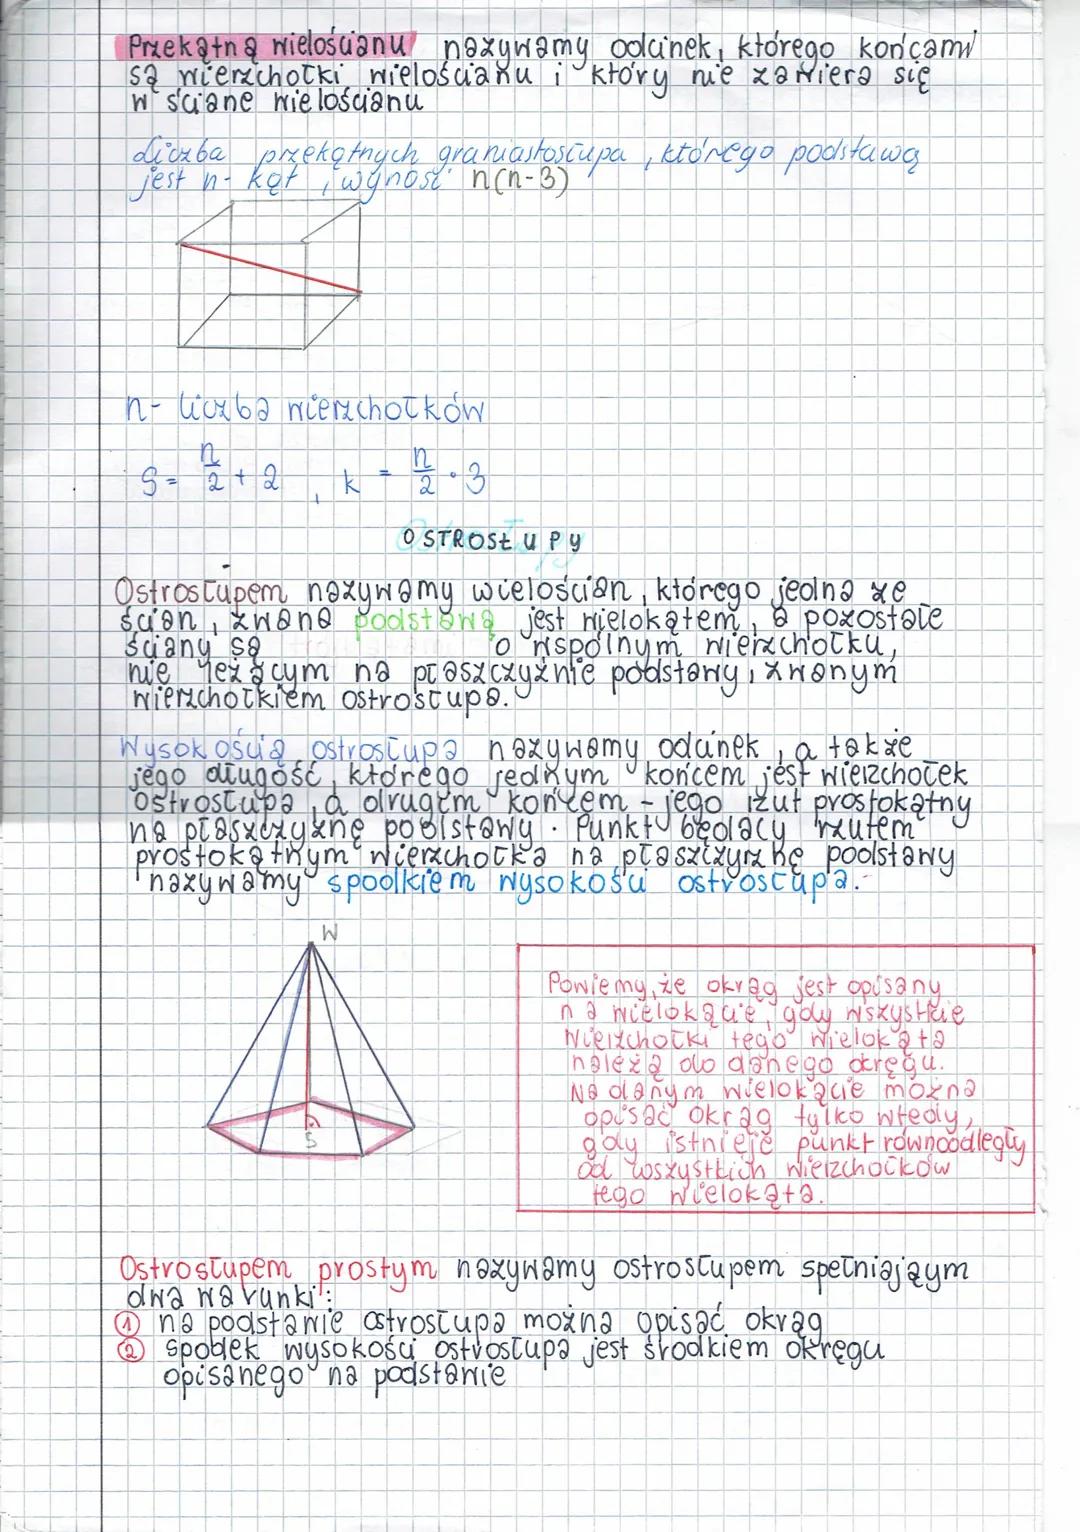 Przekątną wielościanu nazywamy odcinek, którego końcami
są wierzchołki wielościanu i który nie zawiera się
w ścianę wielościanu
Liczba przekątnych graniastosłupa, którego podstawą
jest n-kąt, wynosi n(n-3)
n- liczba wierzchołków
S = n/2 + 2 , k = n/2 · 3
OSTROSŁUPY
Ostrosłupem nazywamy wielościan, którego jedna ze
ścian, zwana podstawą jest wielokątem, a pozostałe
ściany są o wspólnym wierzchołku,
nie leżącym na płaszczyźnie podstawy, zwanym
wierzchołkiem ostrosłupa.
Wysokością ostrosłupa nazywamy odcinek, a także
jego długość, którego jednym końcem jest wierzchołek
ostrosłupa, a drugim końcem - jego rzut prostokątny
na płaszczyznę podstawy. Punkt będący rzutem
prostokątnym wierzchołka na płaszczyznę podstawy
nazywamy spodkiem wysokości ostrosłupa.
W
S
Powiemy, że okrąg jest opisany
na wielokącie, gdy wszystkie
wierzchołki tego wielokąta
należą do danego okręgu.
Na danym wielokącie można
opisać okrąg tylko wtedy,
gdy istnieje punkt równoodległy
od wszystkich wierzchołków
tego wielokąta.
Ostrosłupem prostym nazywamy ostrosłupem spełniającym
dwa warunki:
① na podstawie ostrosłupa można opisać okrąg
② spodek wysokości ostrosłupa jest środkiem okręgu
opisanego na podstawie